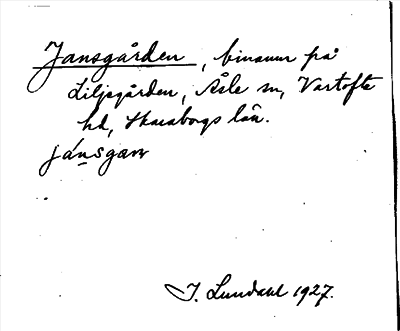 Jansgården, binamn på
Liljegården, Åsle sn, Vartofta
hd, Skaraborgs län.
jánsgaɷ
I. Lundahl 1927.